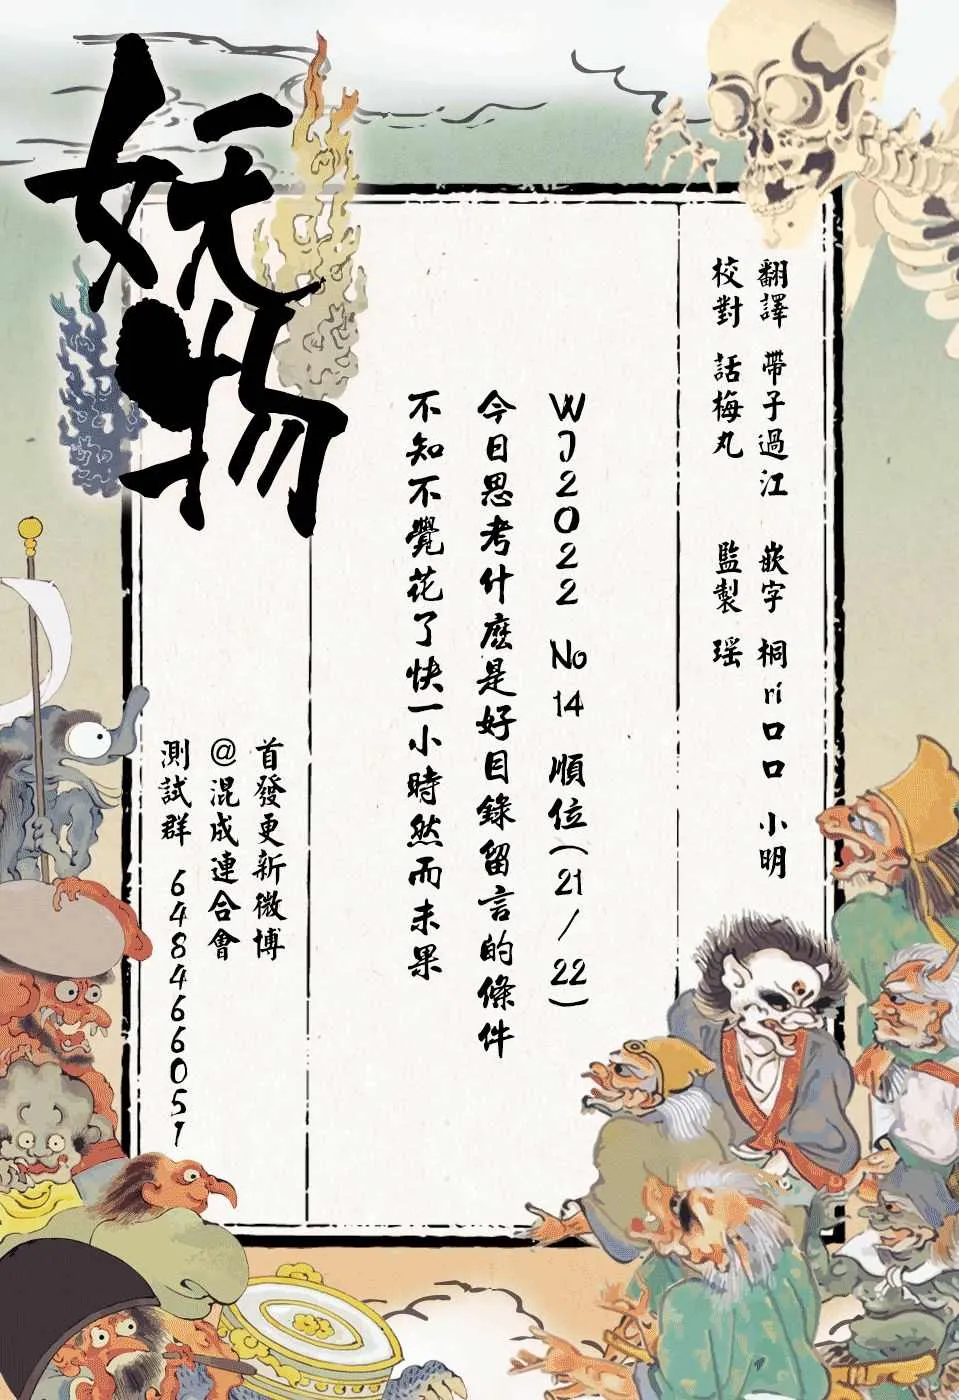 妖物
翻譯 帶子過江 嵌字 桐rí口口 小明
校對 話梅丸 監製 瑶
WJ2022 No14 順位(21/22)
今日思考什麽是好目錄留言的條件
不知不覺花了快一小時然而未果
首發更新微博
@混成連合會
測試群 648466051